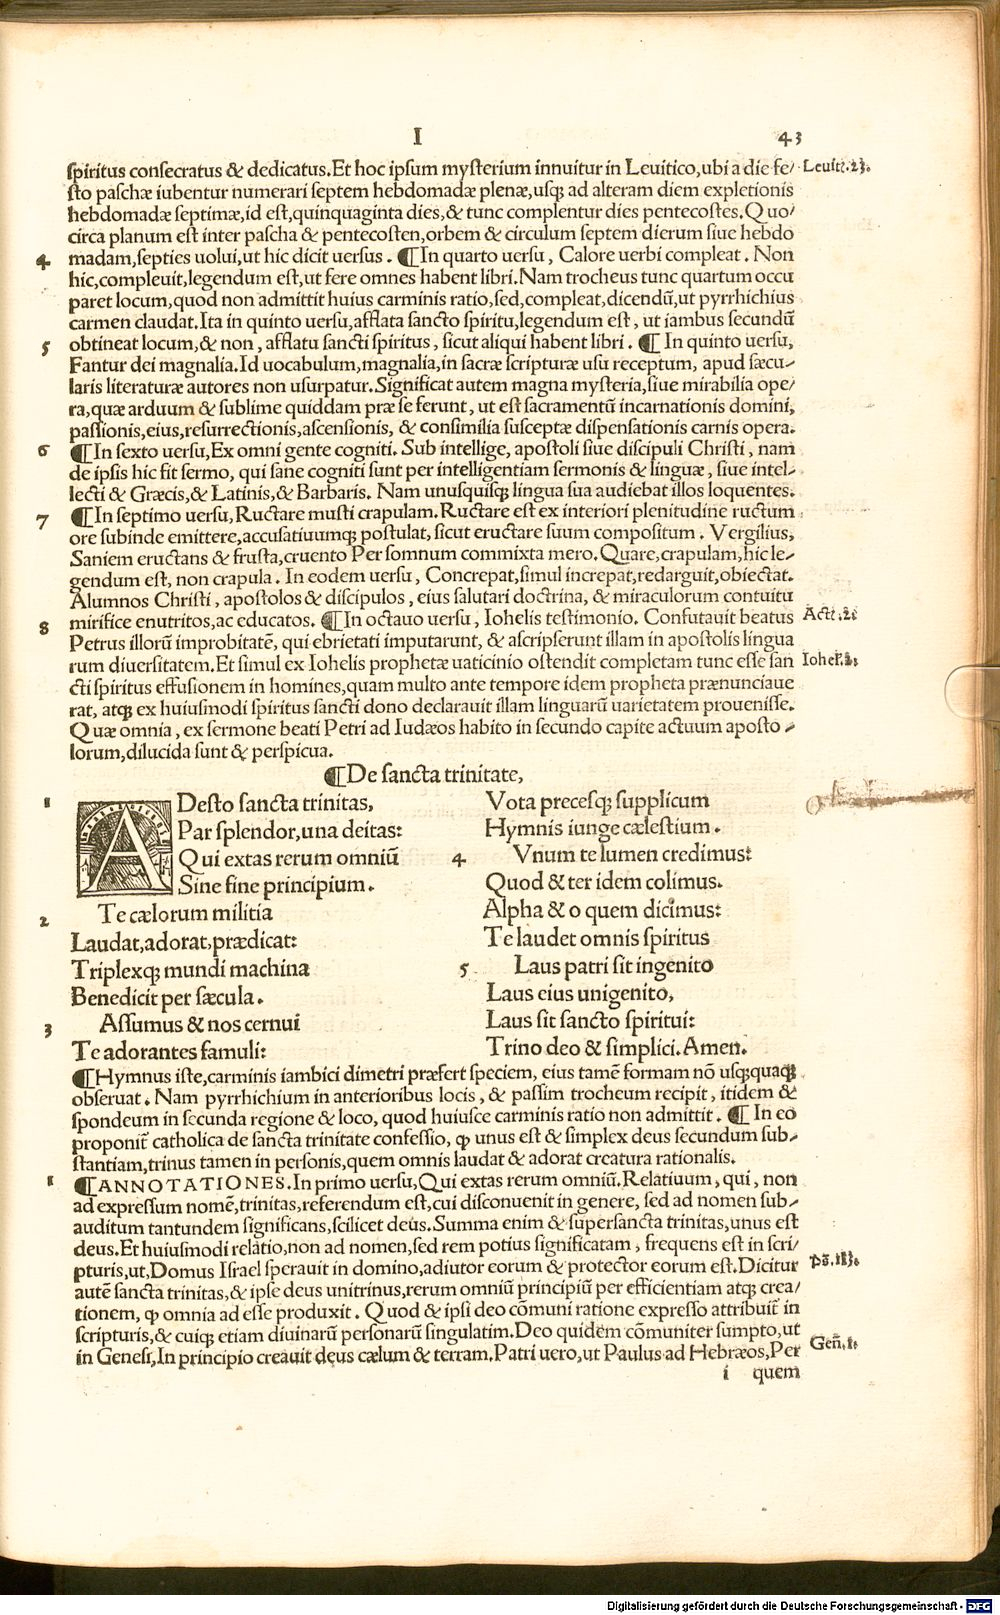 I 43
spiritus consecratus & dedicatus.Et hoc ipsum mysterium innuitur in Leuitico,ubi a die fe/ Leuit.23.
sto paschæ iubentur numerari septem hebdomadæ plenæ,usqꝫ ad alteram diem expletionis
hebdomadæ septimæ,id est,quinquaginta dies,& tunc complentur dies pentecostes.Quo/
circa planum est inter pascha & pentecosten,orbem & circulum septem dierum siue hebdo
4 madam,septies uolui,ut hic dicit uersus. ¶In quarto uersu, Calore uerbi compleat. Non
hic,compleuit,legendum est,ut fere omnes habent libri.Nam trocheus tunc quartum occu
paret locum,quod non admittit huius carminis ratio,sed,compleat,dicendū,ut pyrrhichius
carmen claudat.Ita in quinto uersu,afflata sancto spiritu,legendum est, ut iambus secundū
5 obtineat locum,& non, afflatu sancti spiritus, sicut aliqui habent libri. ¶ In quinto uersu,
Fantur dei magnalia.Id uocabulum,magnalia,in sacræ scripturæ usu receptum, apud sæcu-
laris literaturæ autores non usurpatur.Significat autem magna mysteria,siue mirabilia ope/
ra,quæ arduum & sublime quiddam præ se ferunt, ut est sacramentū incarnationis domini,
passionis,eius,resurrectionis,ascensionis, & consimilia susceptæ dispensationis carnis opera.
6 ¶In sexto uersu,Ex omni gente cogniti. Sub intellige, apostoli siue discipuli Christi, nam
de ipsis hic fit sermo, qui sane cogniti sunt per intelligentiam sermonis & linguæ, siue intel-
lecti & Græcis,& Latinis,& Barbaris. Nam unusquisqꝫ lingua sua audiebat illos loquentes.
7 ¶In septimo uersu,Ructare musti crapulam.Ructare est ex interiori plenitudine ructum
ore subinde emittere,accusatiuumqꝫ postulat,sicut eructare suum compositum. Vergilius,
Saniem eructans & frusta,cruento Per somnum commixta mero.Quare,crapulam,hic le-
gendum est, non crapula. In eodem uersu, Concrepat,simul increpat,redarguit,obiectat.
Alumnos Christi, apostolos & discipulos, eius salutari doctrina, & miraculorum contuitu
8 mirifice enutritos,ac educatos. ¶In octauo uersu, Iohelis testimonio. Confutauit beatus Act.2.
Petrus illorū improbitatē, qui ebrietati imputarunt, & ascripserunt illam in apostolis lingua
rum diuersitatem.Et simul ex Iohelis prophetæ uaticinio ostendit completam tunc esse san Iohel.2.
cti spiritus effusionem in homines,quam multo ante tempore idem propheta prænunciaue
rat, atqꝫ ex huiusmodi spiritus sancti dono declarauit illam linguarū uarietatem prouenisse.
Quæ omnia, ex sermone beati Petri ad Iudæos habito in secundo capite actuum aposto-
lorum,dilucida sunt & perspicua.
¶De sancta trinitate,
1 ADesto sancta trinitas,
Par splendor,una deitas:
Qui extas rerum omniū
Sine fine principium.
2 Te cælorum militia
Laudat,adorat,prædicat:
Triplexqꝫ mundi machina
Benedicit per sæcula.
3 Assumus & nos cernui
Te adorantes famuli:
Vota precesqꝫ supplicum
Hymnis iunge cælestium.
4 Vnum te lumen credimus:
Quod & ter idem colimus.
Alpha & o quem dicimus:
Te laudet omnis spiritus
5 Laus patri sit ingenito
Laus eius unigenito,
Laus sit sancto spiritui:
Trino deo & simplici.Amen.
¶Hymnus iste,carminis iambici dimetri præfert speciem, eius tamē formam nō usqꝫquaqꝫ
obseruat. Nam pyrrhichium in anterioribus locis, & passim trocheum recipit, itidem &
spondeum in secunda regione & loco, quod huiusce carminis ratio non admittit. ¶ In eo
proponit᷑ catholica de sancta trinitate confessio, ꝙ unus est & simplex deus secundum sub-
stantiam,trinus tamen in personis,quem omnis laudat & adorat creatura rationalis.
1 ¶ANNOTATIONES.In primo uersu,Qui extas rerum omniū.Relatiuum, qui, non
ad expressum nomē,trinitas,referendum est,cui disconuenit in genere, sed ad nomen sub-
auditum tantundem significans,scilicet deus.Summa enim & supersancta trinitas,unus est
deus.Et huiusmodi relatio,non ad nomen,sed rem potius significatam, frequens est in scri/
pturis,ut,Domus Israel sperauit in domino,adiutor eorum & protector eorum est.Dicitur Ps.113.
autē sancta trinitas,& ipse deus unitrinus,rerum omniū principiū per efficientiam atqꝫ crea/
tionem, ꝙ omnia ad esse produxit. Quod & ipsi deo cōmuni ratione expresso attribuit᷑ in
scripturis,& cuiqꝫ etiam diuinarū personarū singulatim.Deo quidem cōmuniter sumpto,ut
in Genesi,In principio creauit deus cælum & terram.Patri uero,ut Paulus ad Hebræos,Per Gen̄.1.
i quem
Digitalisierung gefördert durch die Deutsche Forschungsgemeinschaft - DFG